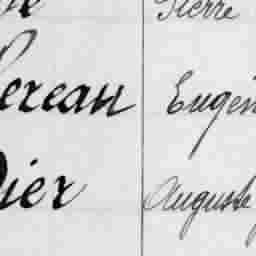 Pierre
ereau Eugén
ier Auguste